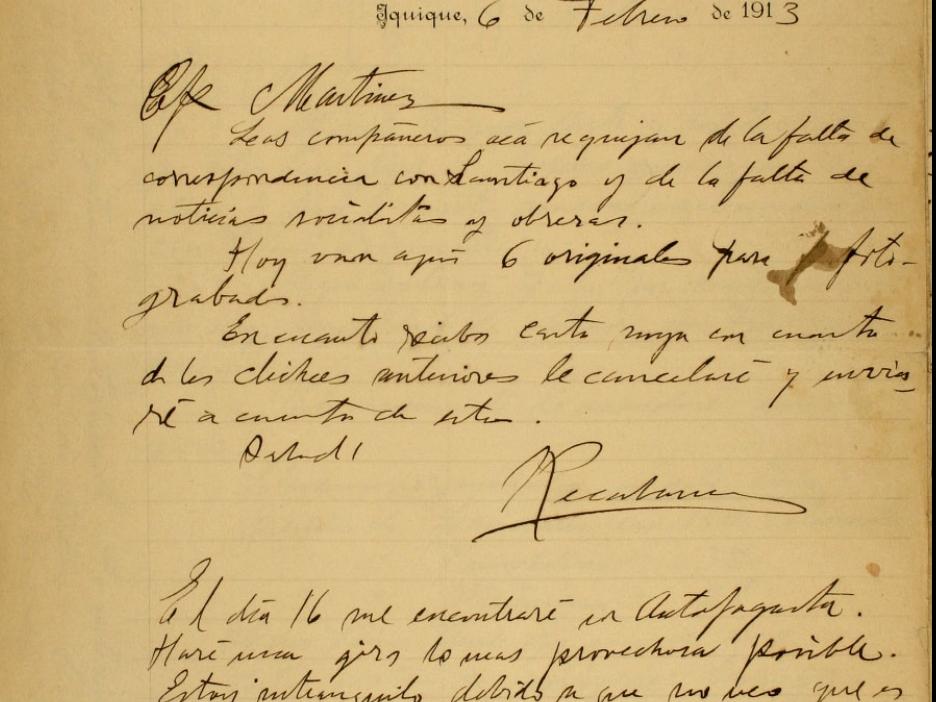 Iquique, 6 de Febrero de 1913
Martinez
Los compañeros acá se quejan de la falta de
correspondencia con Santiago y de la falta de
noticias socialistas y obreras.
Hoy van aquí 6 originales para foto-
grabados.
En cuanto reciba carta suya con cuenta
de los clichees anteriores le cancelaré y envia-
ré a cuenta de estos.
Salud!
Recabarren
El día 16 me encontraré en Antofagasta.
Haré una gira lo mas provechosa posible.
Estoy intranquilo debido a que no veo que es